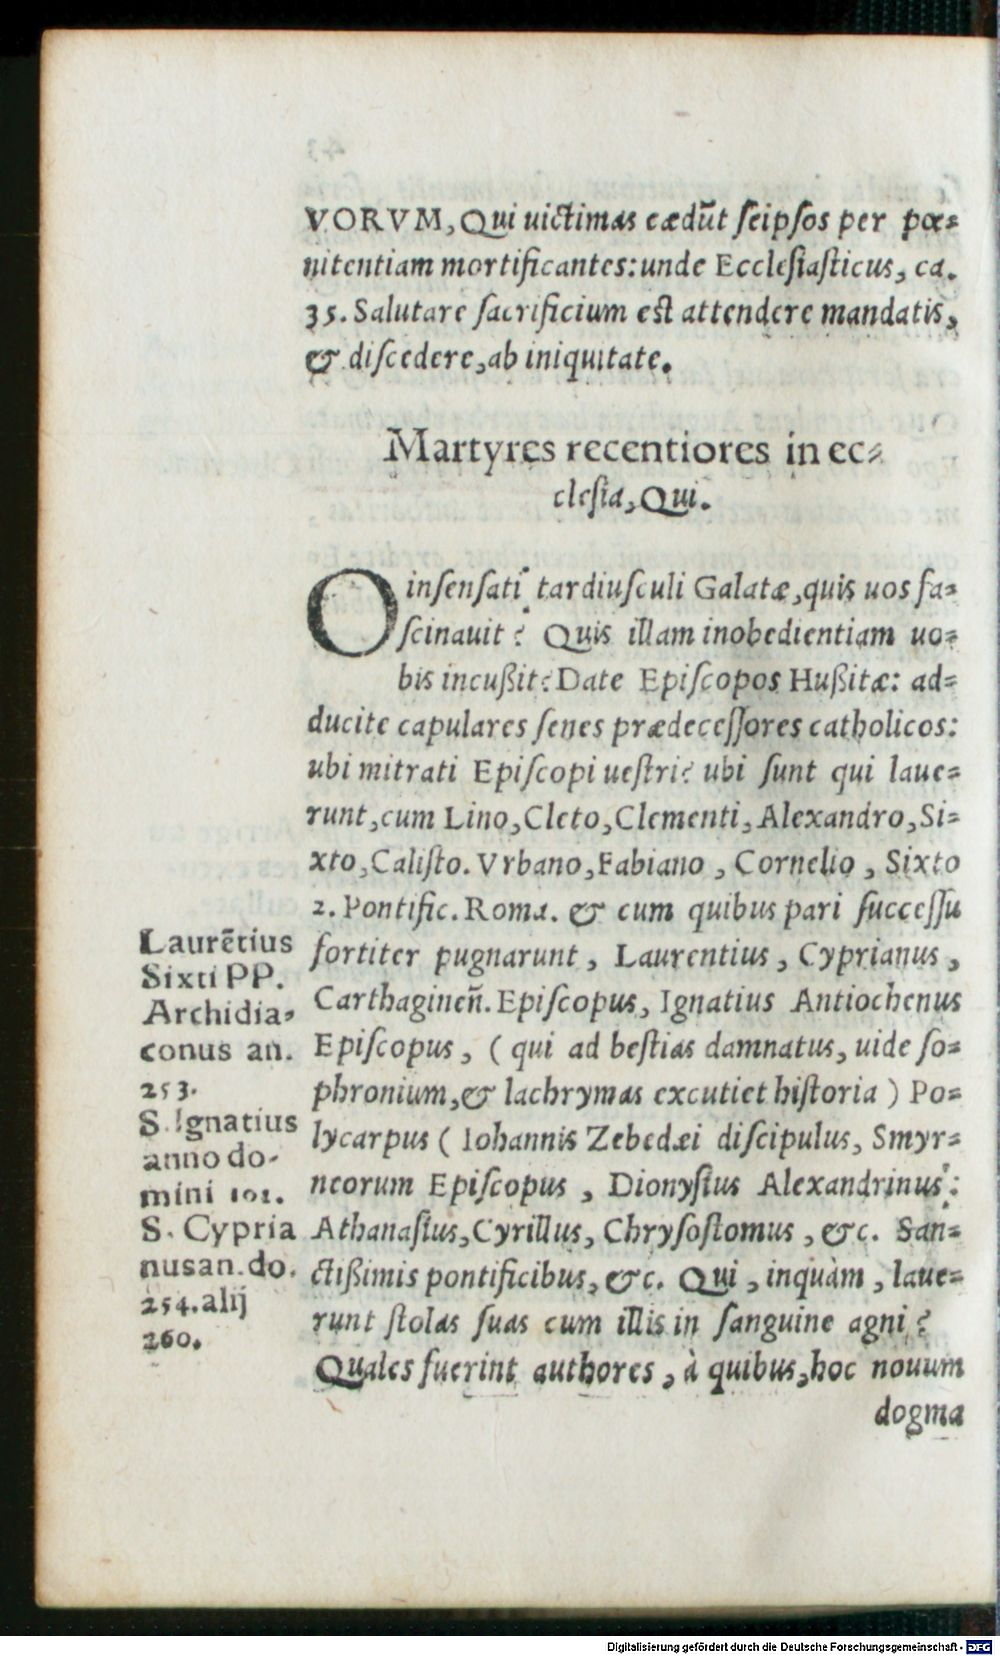 VORVM, Qui uictimas cædūt ſeipſos per pœ⸗
nitentiam mortificantes: unde Eccleſiaſticus, ca.
35. Salutare ſacrificium eſt attendere mandatis,
& diſcedere, ab iniquitate.
Martyres recentiores in ec⸗
cleſia, Qui.
O inſenſati tardiuſculi Galatæ, quis uos fa⸗
ſcinauit? Quis illam inobedientiam uo⸗
bis incußit? Date Epiſcopos Hußitæ: ad⸗
ducite capulares ſenes prædeceſſores catholicos:
ubi mitrati Epiſcopi ueſtri? ubi ſunt qui laue⸗
runt, cum Lino, Cleto, Clementi, Alexandro, Si⸗
xto, Caliſto. Vrbano, Fabiano, Cornelio, Sixto
2. Pontific. Roma. & cum quibus pari ſucceſſu
fortiter pugnarunt, Laurentius, Cyprianus,
Carthaginen̄. Epiſcopus, Ignatius Antiochenus
Epiſcopus, (qui ad beſtias damnatus, uide ſo⸗
phronium, & lachrymas excutiet hiſtoria) Po⸗
lycarpus (Iohannis Zebedæi diſcipulus, Smyr⸗
neorum Epiſcopus, Dionyſius Alexandrinus:
Athanaſius, Cyrillus, Chryſoſtomus, &c. San⸗
ctißimis pontificibus, &c. Qui, inquàm, laue⸗
runt ſtolas ſuas cum illis in ſanguine agni?
Quales fuerint authores, à quibus, hoc nouum
dogma
Laurētius
Sixti PP.
Archidia⸗
conus an.
253.
S. Ignatius
anno do-
mini 101.
S. Cypria
nus an. do.
254. alij
260.
Digitalisierung gefördert durch die Deutsche Forschungsgemeinschaft - DFG